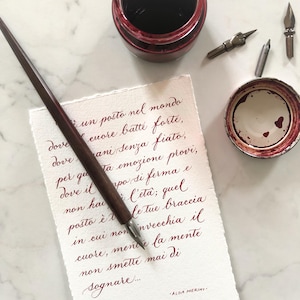 C'è un posto nel mondo
dove il cuore batte forte,
dove rimani senza fiato,
per quanta emozione provi;
dove il tempo si ferma e
non hai più l'età; quel
posto è tra le tue braccia
in cui non invecchia il
cuore, mentre la mente
non smette mai di
sognare...
~ALDA MERINI~